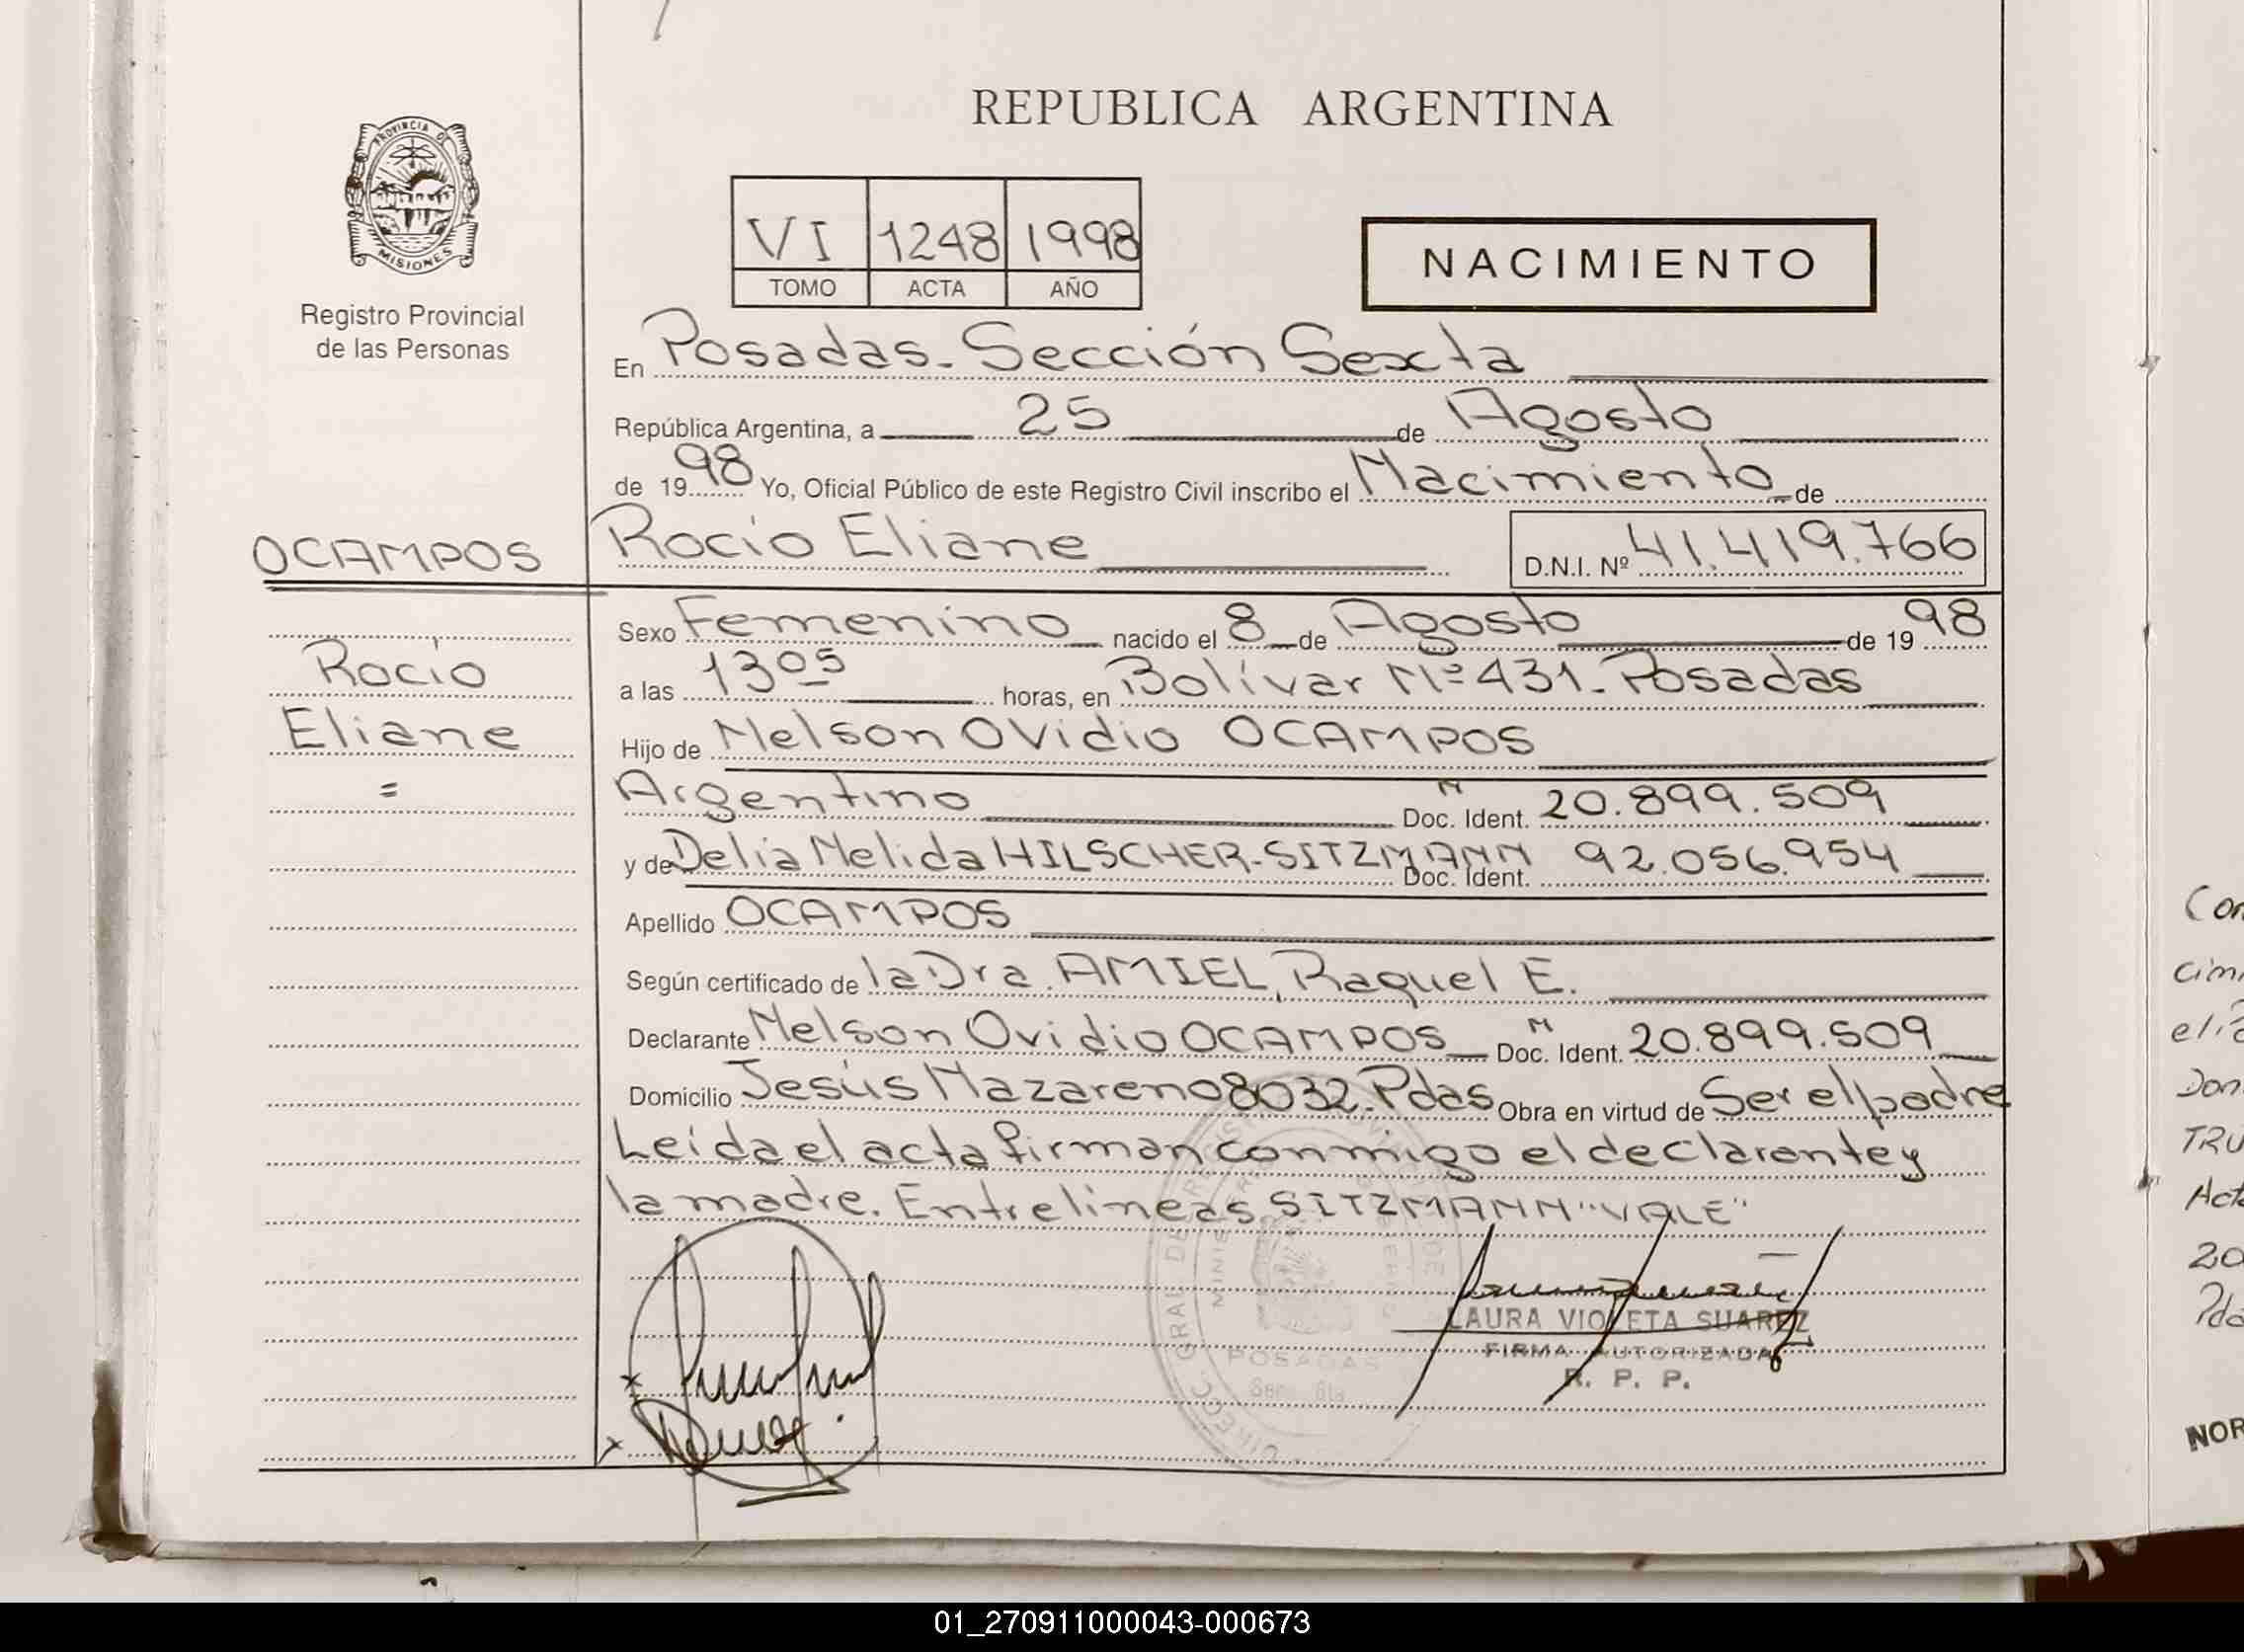 REPUBLICA ARGENTINA
PROVINCIA DE
MISIONES
Registro Provincial
de las Personas
VI 1248 1998
TOMO ACTA AÑO
NACIMIENTO
En Posadas. Sección Sexta
República Argentina, a 25 de Agosto
de 1998 Yo, Oficial Público de este Registro Civil inscribo el Nacimiento de
OCAMPOS Rocío Eliane D.N.I. Nº 41.419.766
Sexo Femenino nacido el 8 de Agosto de 1998
Rocío
a las 13 05 horas, en Bolívar Nº 431. Posadas
Eliane
Hijo de Nelson Ovidio OCAMPOS
=
Argentino Doc. Ident. N 20.899.509
y de Delia Nelida HILSCHER-SITZMANN Doc. Ident. 92.056.954
Apellido OCAMPOS
Según certificado de la Dra. AMIEL, Raquel E.
Declarante Nelson Ovidio OCAMPOS Doc. Ident. N 20.899.509
Domicilio Jesús Nazareno 8032. Pdas Obra en virtud de Ser el padre
Leída el acta firman conmigo el declarante y
la madre. Entrelíneas SITZMANN "VALE"
LAURA VIOLETA SUAREZ
FIRMA AUTORIZADA
R. P. P.
DIRECC. GRAL. DE
POSADAS
Secc. 6ta
Con
cim
Don
TRU
Act
20
Pda
NOR
01_270911000043-000673